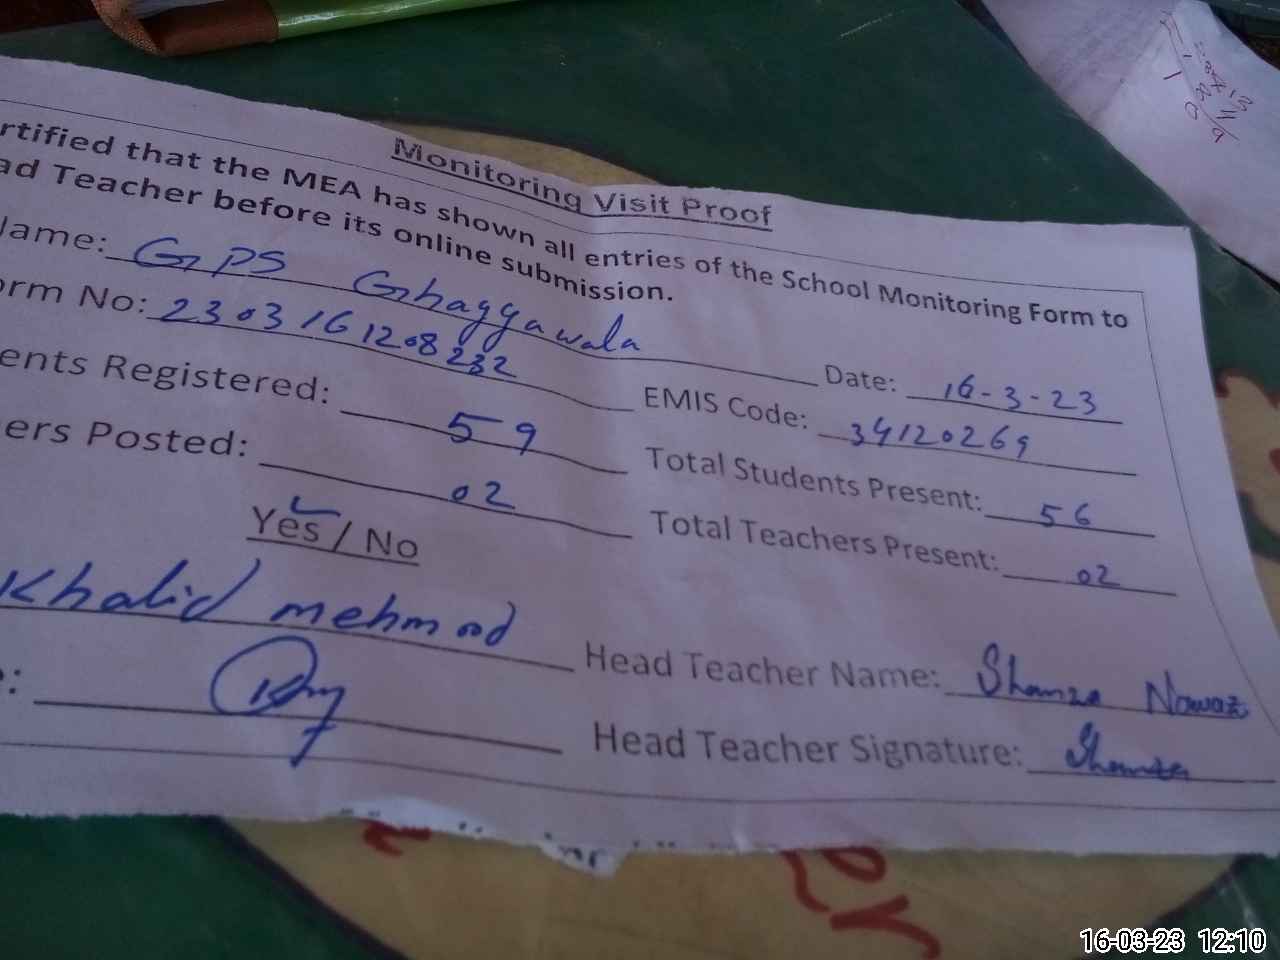 Monitoring Visit Proof
rtified that the MEA has shown all entries of the School Monitoring Form to
ad Teacher before its online submission.
Name: GPS Ghaggawala Date: 16-3-23
orm No: 2303161208232 EMIS Code: 34120269
ents Registered: 59 Total Students Present: 56
ers Posted: 02 Total Teachers Present: 02
Yes / No
Khalid mehmood Head Teacher Name: Shamza Nawaz
e: Head Teacher Signature: Shamza
16-03-23 12:10